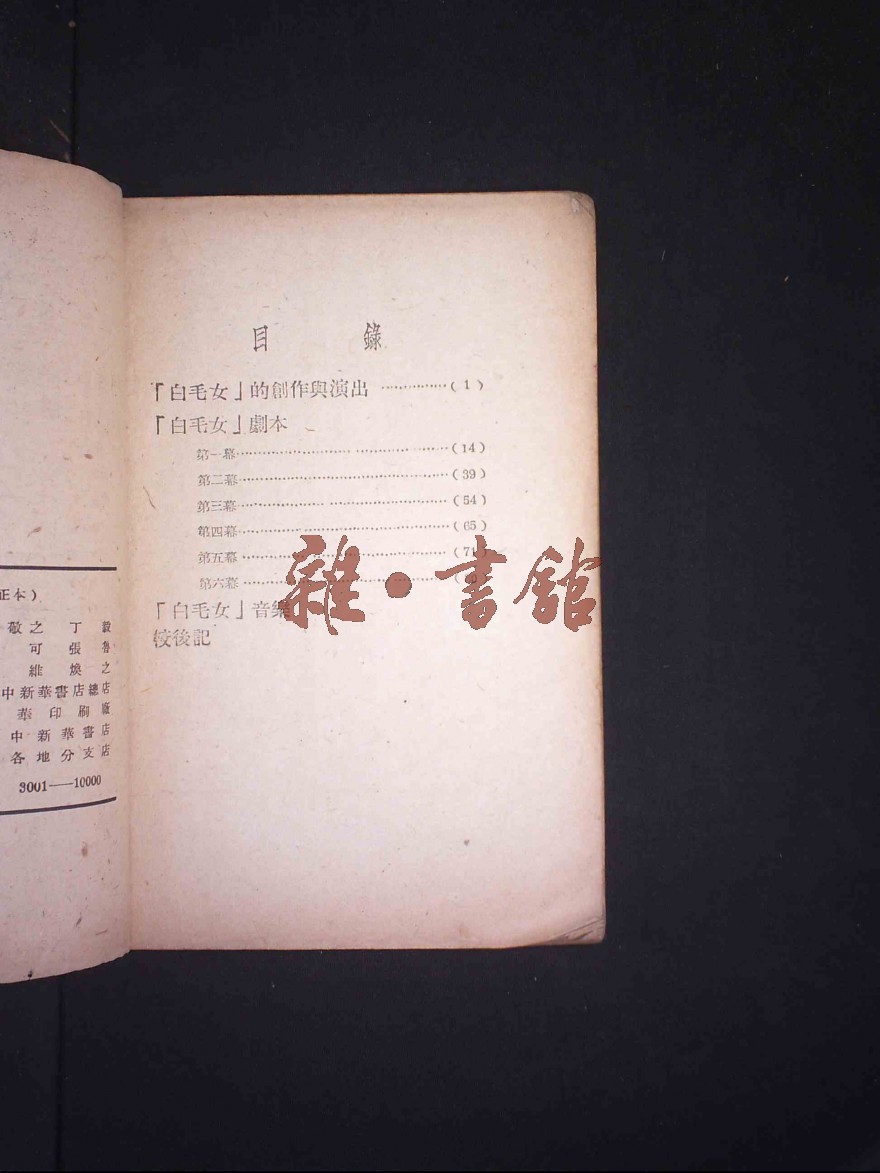 正本)
敬之 丁毅
可 張魯
維 煥之
中新華書店總店
華印刷廠
中新華書店
各地分支店
3001——10000
目 錄
「白毛女」的創作與演出 ……………(1)
「白毛女」劇本
第一幕……………………………………(14)
第二幕……………………………………(39)
第三幕……………………………………(54)
第四幕……………………………………(65)
第五幕……………………………………(71)
第六幕……………………………………
「白毛女」音樂
校後記
雜·書館